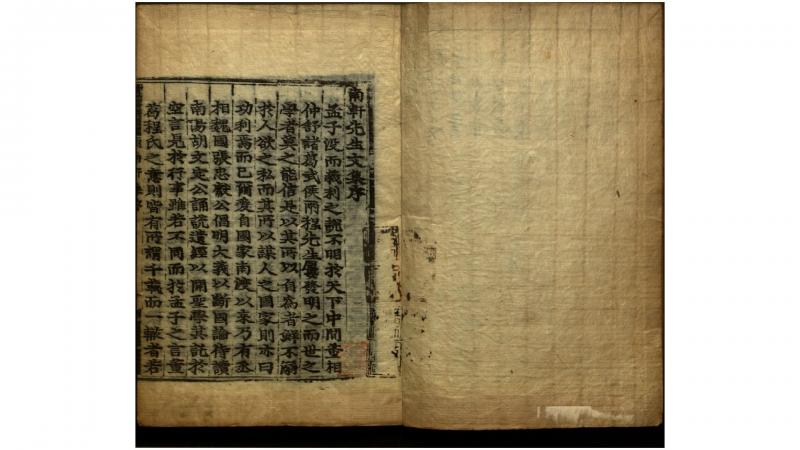 南軒先生文集序
孟子没而義利之説不明扵天下中間董相
仲舒諸葛武侯兩程先生屢發明之而世之
學者莫之能信是以其所以自爲者鮮不溺
扵人欲之私而其所以謀人之國家則亦曰
功利焉而已爾爰自國家南渡以來乃有丞
相魏國張忠獻公倡明大義以斷國論侍讀
南陽胡文定公誦説遺經以開聖學其託扵
空言見扵行事雖若不同而扵孟子之言董
葛程氏之意則皆有所謂千載而一轍者若